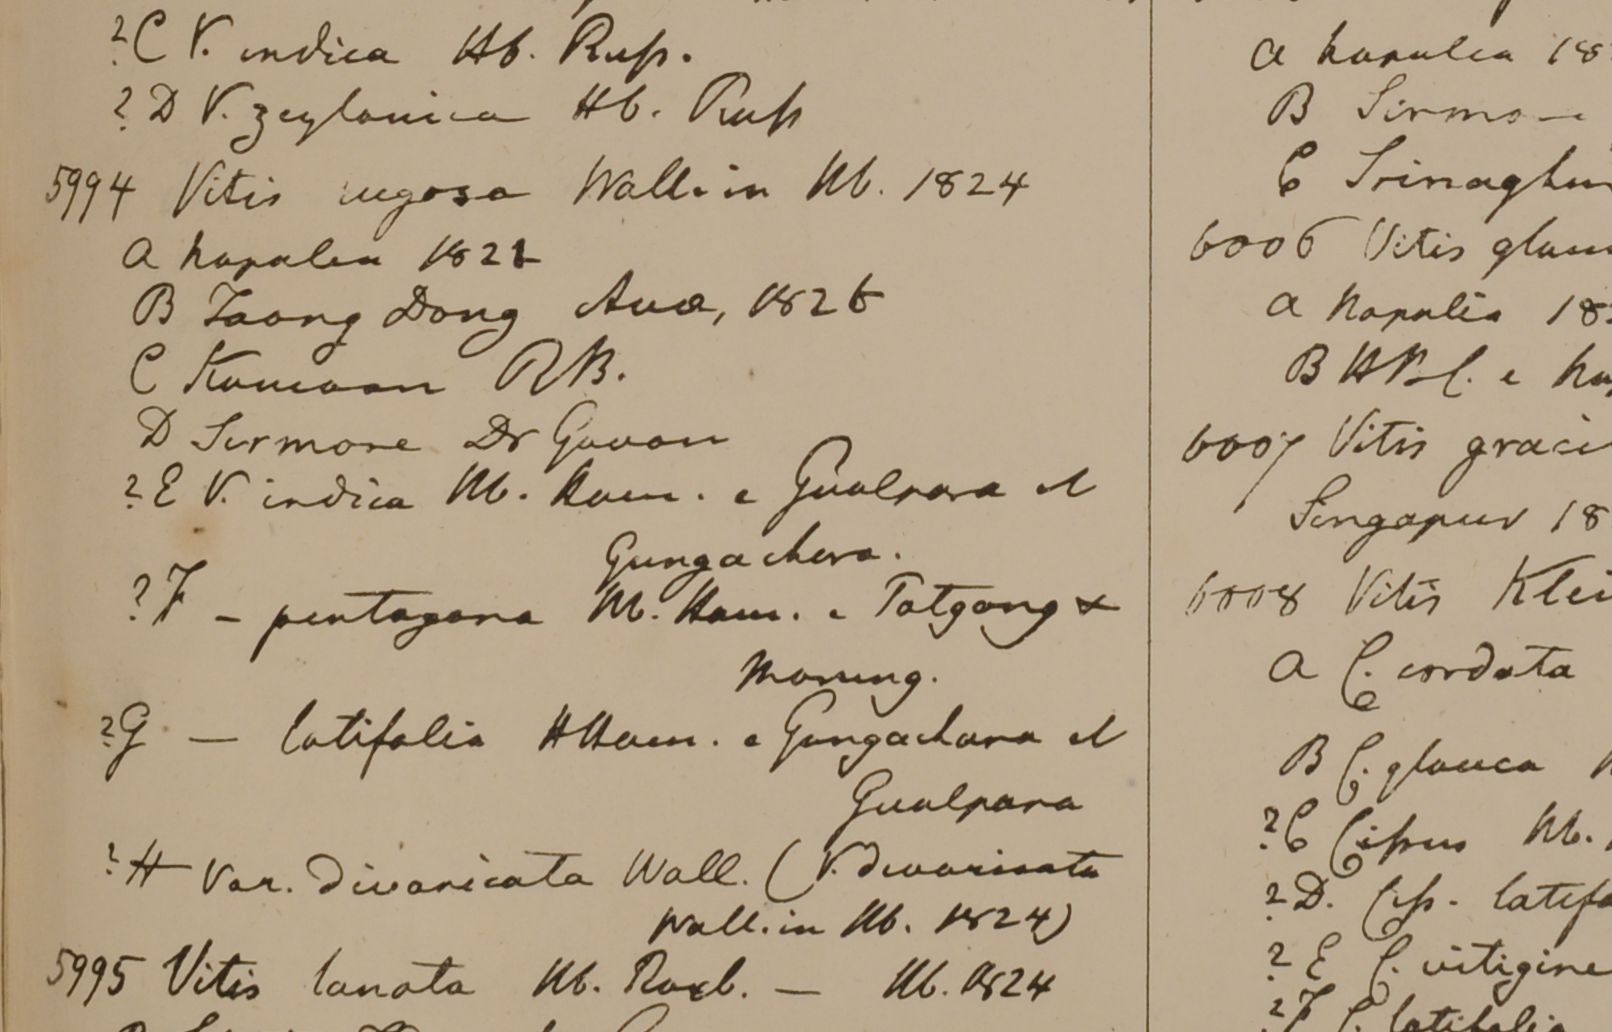 ?C V. indica Hb. Russ.
?D V. zeylanica Hb. Russ
5994 Vitis rugosa Wall. in Hb. 1824
A Napalia 1821
B Taong Dong Ava, 1826
C Kumaon RB.
D Sirmore Dr Govan
?E V. indica Hb. Ham. e Gualpara et
Gungachora.
?F – pentagona Hb. Ham. e Tatgong &
Monung.
?G — latifolia HHam. e Gungachara et
Gualpara
?H Var. divaricata Wall. (V. divaricata
Wall. in Hb. 1824)
5995 Vitis lanata Hb. Roxb. — Hb. 1824
A Napalia 18
B Sirmore
C Srinaghur
6006 Vitis glau
A Napalia 18
B HBC. e Na
6007 Vitis graci
Singapur 18
6008 Vitis Klei
A C. cordata
B C. glauca
?C Cissus Hb.
?D. Ciss. latifo
?E C. vitigine
?F C. latifolia